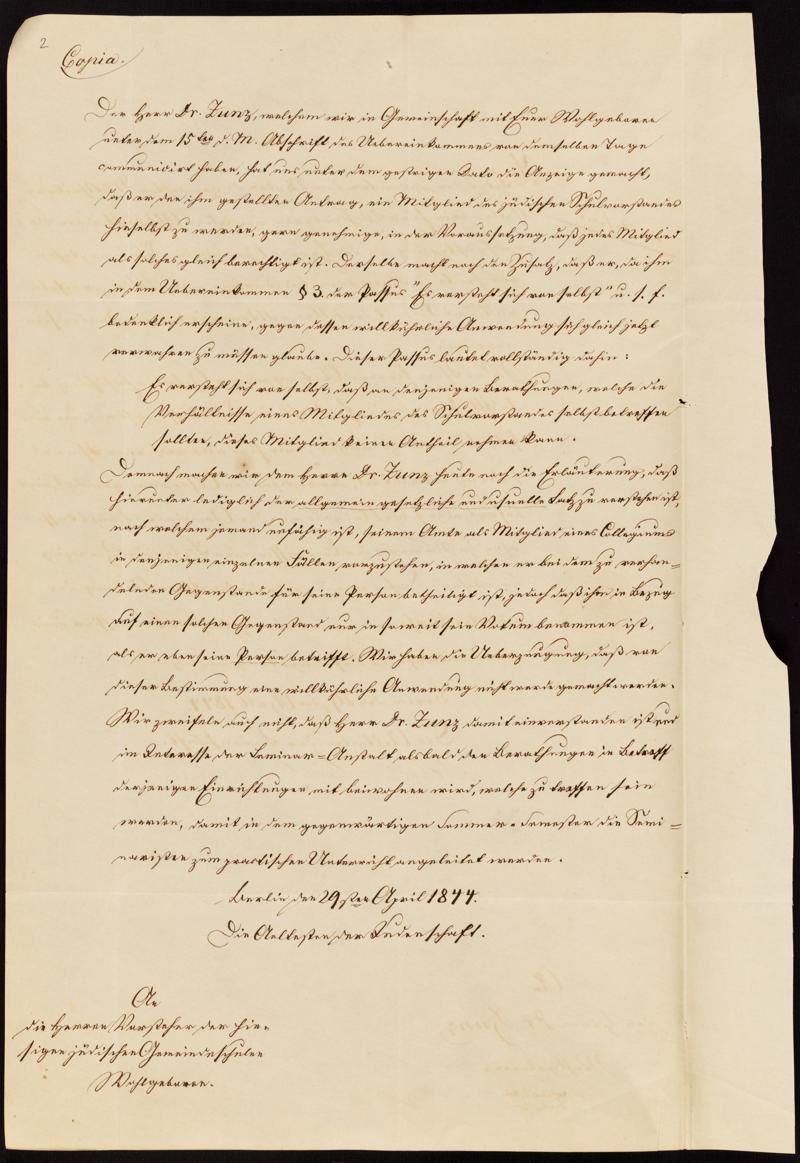 2
Copia.
Der Herr Dr. Zunz, welchem wir in Gemeinschaft mit Euer Wohlgeboren
unter dem 15ten d. M. Abschrift des Uebereinkommens von demselben Tage
communicirt haben, hat uns unter dem gestrigen Dato die Anzeige gemacht,
daß er den ihm gestellten Antrag, ein Mitglied des jüdischen Schulvorstandes
hieselbst zu werden, gern genehmige, in der Voraussetzung, daß jedes Mitglied
als solches gleich berechtigt ist. Derselbe macht noch den Zusatz, daß er, da ihm
in dem Uebereinkommen § 3. der Passus "Es versteht sich von selbst" u. s. f.
bedenklich erscheine, gegen dessen willkührliche Anwendung sich gleich jetzt
verwahren zu müssen glaube. Dieser Passus lautet vollständig dahin:
Es versteht sich von selbst, daß an denjenigen Berathungen, welche die
Verhältnisse eines Mitgliedes des Schulvorstandes selbst betreffen
sollten, dieses Mitglied keinen Antheil nehmen kann.
Demnach machen wir dem Herrn Dr. Zunz heute noch die Erläuterung, daß
hierunter lediglich der allgemein gesetzliche und usuelle Satz zu verstehen ist,
nach welchem jemand unfähig ist, seinem Amte als Mitglied eines Collegiums
in denjenigen einzelnen Fällen vorzustehen, in welchen er bei dem zu verhan=
delnden Gegenstande für seine Person betheiligt ist, jedoch daß ihm in Bezug
auf einen solchen Gegenstand nur in soweit sein Votum benommen ist,
als er eben seine Person betrifft. Wir haben die Ueberzeugung, daß von
dieser Bestimmung eine willkührliche Anwendung nicht werde gemacht werden.
Wir zweifeln auch nicht, daß Herr Dr. Zunz damit einverstanden ist und
im Interesse der Seminar=Anstalt alsbald den Berathungen in Betreff
derjenigen Einrichtungen mit beiwohnen wird, welche zu treffen sein
werden, damit in dem gegenwärtigen Sommer=Semester die Semi=
naristen zum practischen Unterricht angeleitet werden.
Berlin den 29sten April 1844.
Die Aeltesten der Judenschaft.
An
die Herren Vorsteher der hie=
sigen jüdischen Gemeindeschulen
Wohlgeboren.